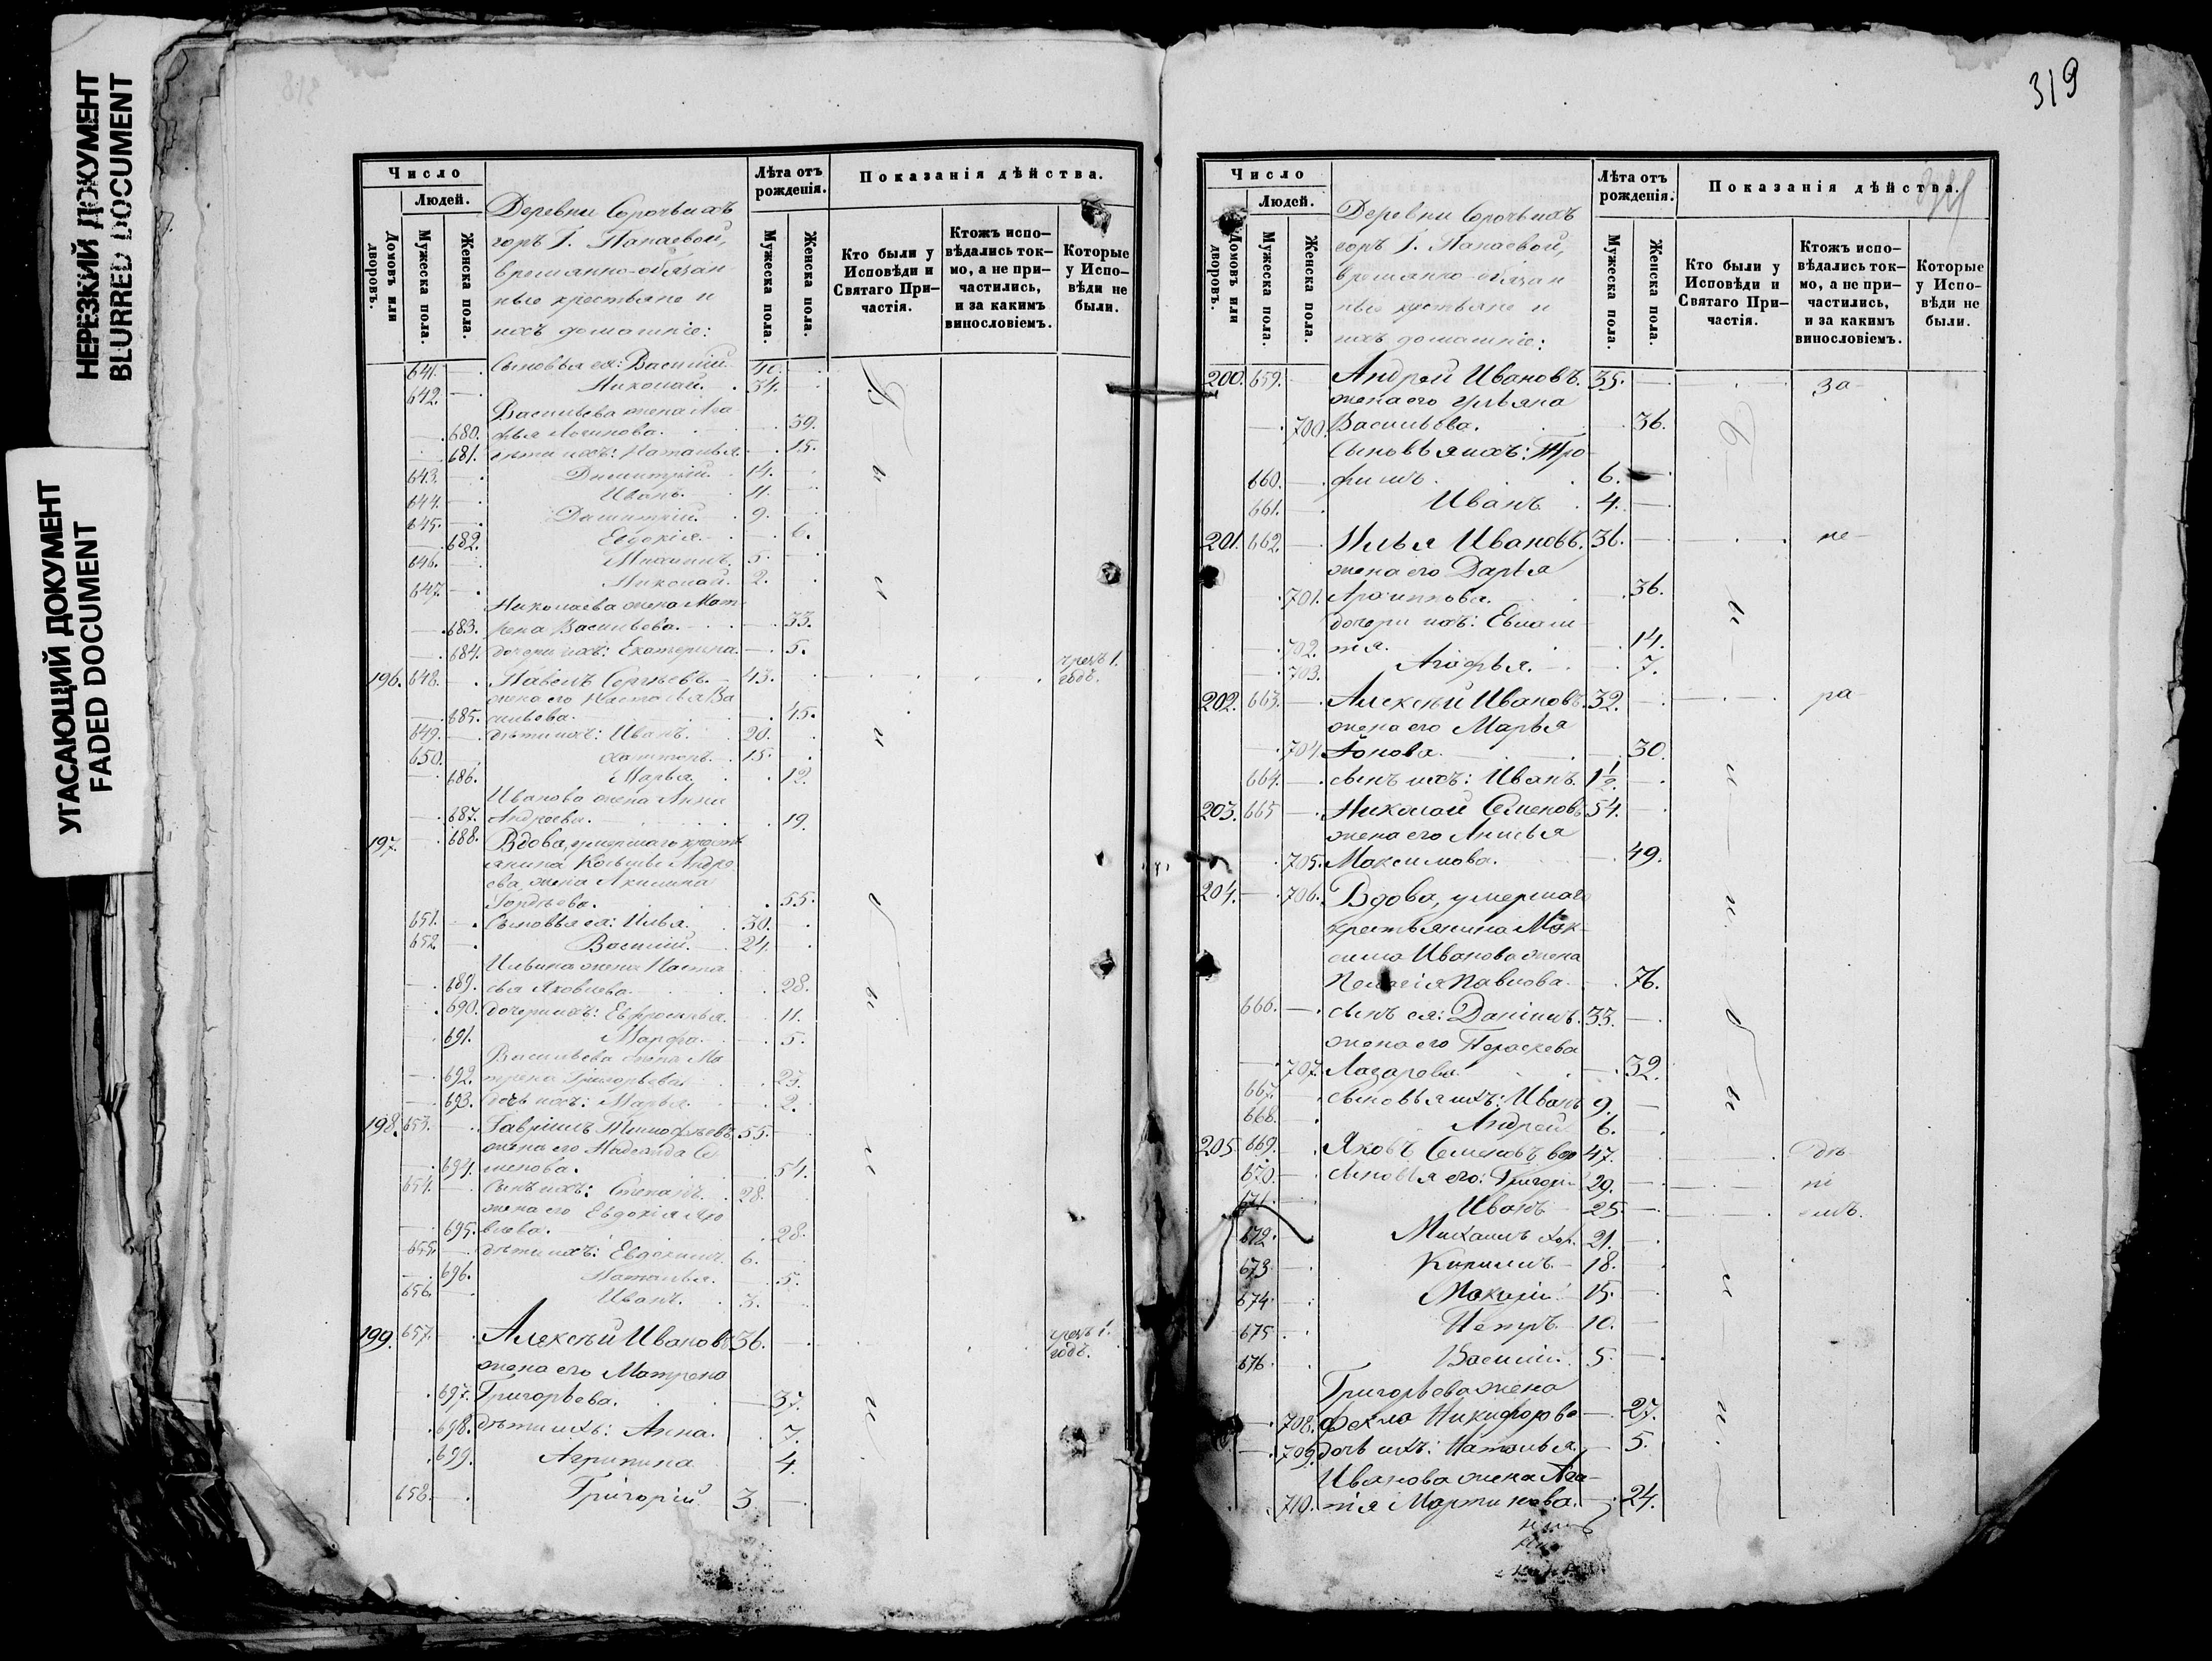 НЕРЕЗКИЙ ДОКУМЕНТ
BLURRED DOCUMENT
УГАСАЮЩИЙ ДОКУМЕНТ
FADED DOCUMENT
Число
Людей.
Домовъ или дворовъ.
Мужеска пола.
Женска пола.
Деревни Сорочьихъ
горъ Г. Панаевой,
временно-обязан
ные крестьяне и
ихъ домашніе:
Лѣта отъ рожденія.
Мужеска пола.
Женска пола.
Показанія дѣйства.
Кто были у Исповѣди и Святаго Причастія.
Ктожъ исповѣдались токмо, а не причастились, и за какимъ винословіемъ.
Которые у Исповѣди не были.
641. Сыновья ея: Василій. 40.
642. Николай. 34.
Васильева жена Ага
680. фья Логинова. 39.
681. дѣти ихъ: Наталья. 15.
643. Димитрій. 14.
644. Иванъ. 11.
645. Димитрій. 9.
682. Евдокія. 6.
646. Михаилъ. 5.
647. Николай. 2.
Николаева жена Мат
683. рена Васильева. 33.
684. дочери ихъ: Екатерина. 5.
196. 648. Павелъ Сергѣевъ. 43. чрезъ 1. годъ.
жена его Настасья Ва
685. сильева. 45.
649. дѣти ихъ: Иванъ. 20.
650. 15.
686. Марья. 12.
Иванова жена Анна
687. Андреева. 19.
197. 688. Вдова, умершаго кресть
янина Косьмы Андре
ева жена Акилина
Гордѣева. 55.
651. Сыновья ея: Илья. 30.
652. Василій. 24.
Ильина жена Наста
689. сья Яковлева. 28.
690. дочери ихъ: Евфросинья. 11.
691. Марфа. 5.
Васильева жена Ма
692. трена Григорьева. 23.
693. дочь ихъ: Марья. 2.
198. 653. Гавріилъ Тимофѣевъ 55.
жена его Надежда Се
694. менова. 54.
654. Сынъ ихъ: Степанъ. 28.
жена его Евдокія Яко
695. влева. 28.
655. дѣти ихъ: Евдокимъ. 6.
696. Наталья. 5.
656. Иванъ. 3.
199. 657. Алексѣй Ивановъ 36. чрезъ 1. годъ.
жена его Матрена
697. Григорьева. 37.
698. дѣти ихъ: Анна. 7.
699. Агрипина 4.
658. Григорій 3.
319
Число
Людей.
Домовъ или дворовъ.
Мужеска пола.
Женска пола.
Деревни Сорочьихъ
горъ Г. Панаевой,
временно-обязан
ные крестьяне и
ихъ домашніе:
Лѣта отъ рожденія.
Мужеска пола.
Женска пола.
Показанія дѣйства.
Кто были у Исповѣди и Святаго Причастія.
Ктожъ исповѣдались токмо, а не причастились, и за какимъ винословіемъ.
Которые у Исповѣди не были.
200. 659. Андрей Ивановъ. 35. за
жена его Ульяна
700. Васильева. 36.
Сыновья ихъ: Тро
660. фимъ. 6.
661. Иванъ. 4.
201. 662. Илья Ивановъ. 36. не
жена его Дарья
701. Архипова. 36.
дочери ихъ: Евлам
702. пія. 14.
703. Агафья. 7.
202. 663. Алексѣй Ивановъ. 32. ра
жена его Марья
704. Іонова. 30.
664. сынъ ихъ: Иванъ. 1½.
203. 665 Николай Семеновъ 54.
жена его Анисья
705. Максимова. 49.
204. 706. Вдова, умершаго
крестьянина Мак
сима Иванова жена
Пелагія Павлова. 76.
666. сынъ ея: Даніилъ. 33.
жена его Параскева
707. Лазарева. 32.
667. сыновья ихъ: Иванъ 9.
668. Андрей 6.
205. 669. Яковъ Семеновъ вдо 47. дѣ
670. сыновья его: Григорій 29. ні
671. Иванъ 25. емъ.
672. Михаилъ хол. 21.
673. Кирилъ 18.
674. 15.
675. Петръ. 10.
676. Василій. 5.
Григорьева жена
708. Фекла Никифорова 27.
709. дочь ихъ: Наталья. 5.
Иванова жена Ага
710. пія Мартинова. 24.